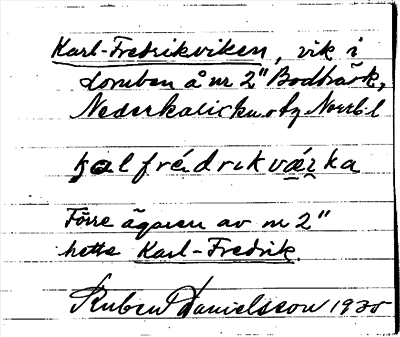 Karl-Fredrikviken, vik i
å nr 2" Bodträsk,
Nederkalix Norrb. l
kalfrédrikvǽka
Förre ägaren av nr 2"
hette Karl-Fredrik.
Ruben Danielsson 1930